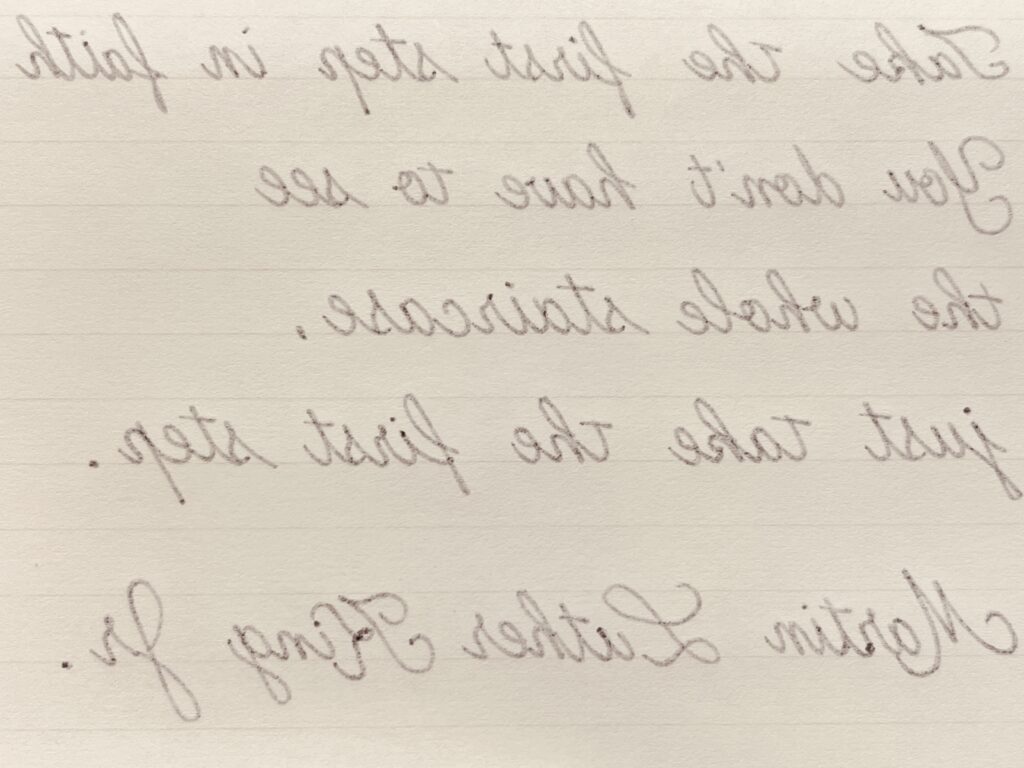 Take the first step in faith
You don't have to see
the whole staircase.
just take the first step.
Martin Luther King Jr.